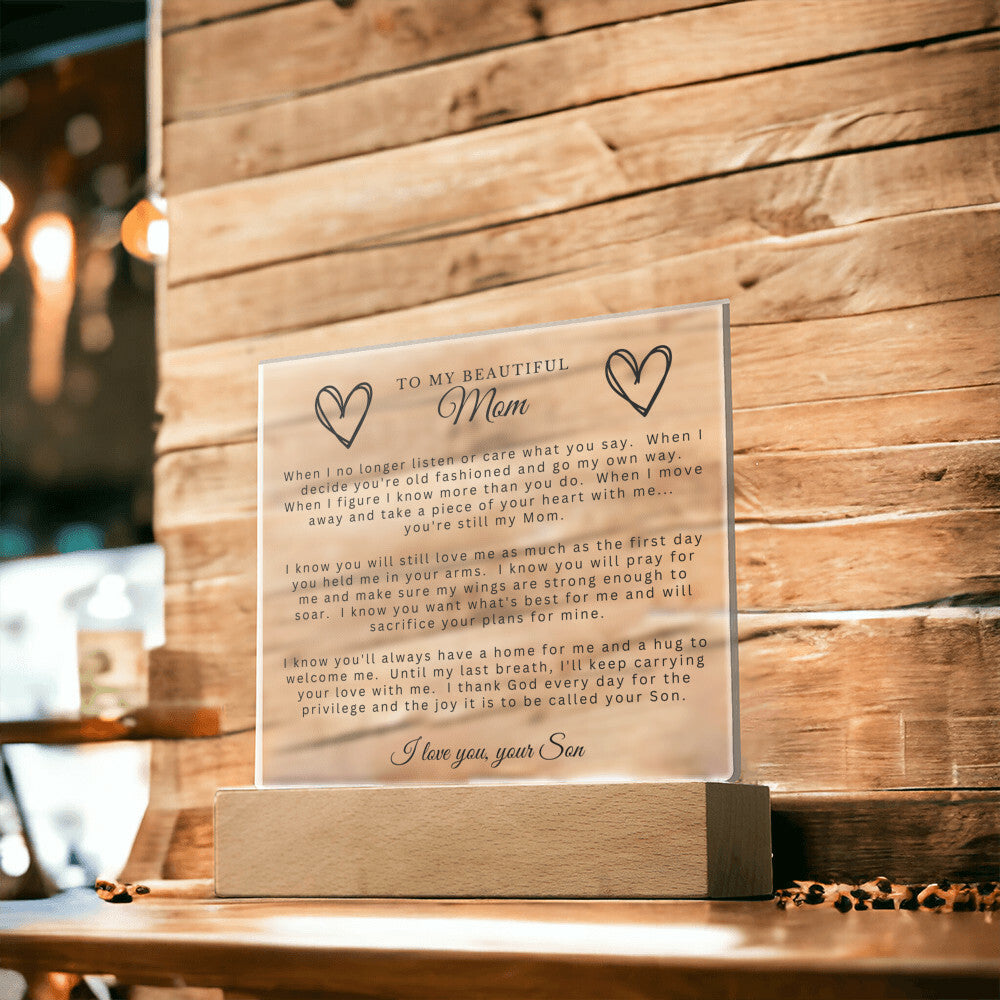 TO MY BEAUTIFUL
Mom
When I no longer listen or care what you say.  When I
decide you're old fashioned and go my own way.
When I figure I know more than you do.  When I move
away and take a piece of your heart with me...
you're still my Mom.
I know you will still love me as much as the first day
you held me in your arms.  I know you will pray for
me and make sure my wings are strong enough to
soar.  I know you want what's best for me and will
sacrifice your plans for mine.
I know you'll always have a home for me and a hug to
welcome me.  Until my last breath, I'll keep carrying
your love with me.  I thank God every day for the
privilege and the joy it is to be called your Son.
I love you, your Son